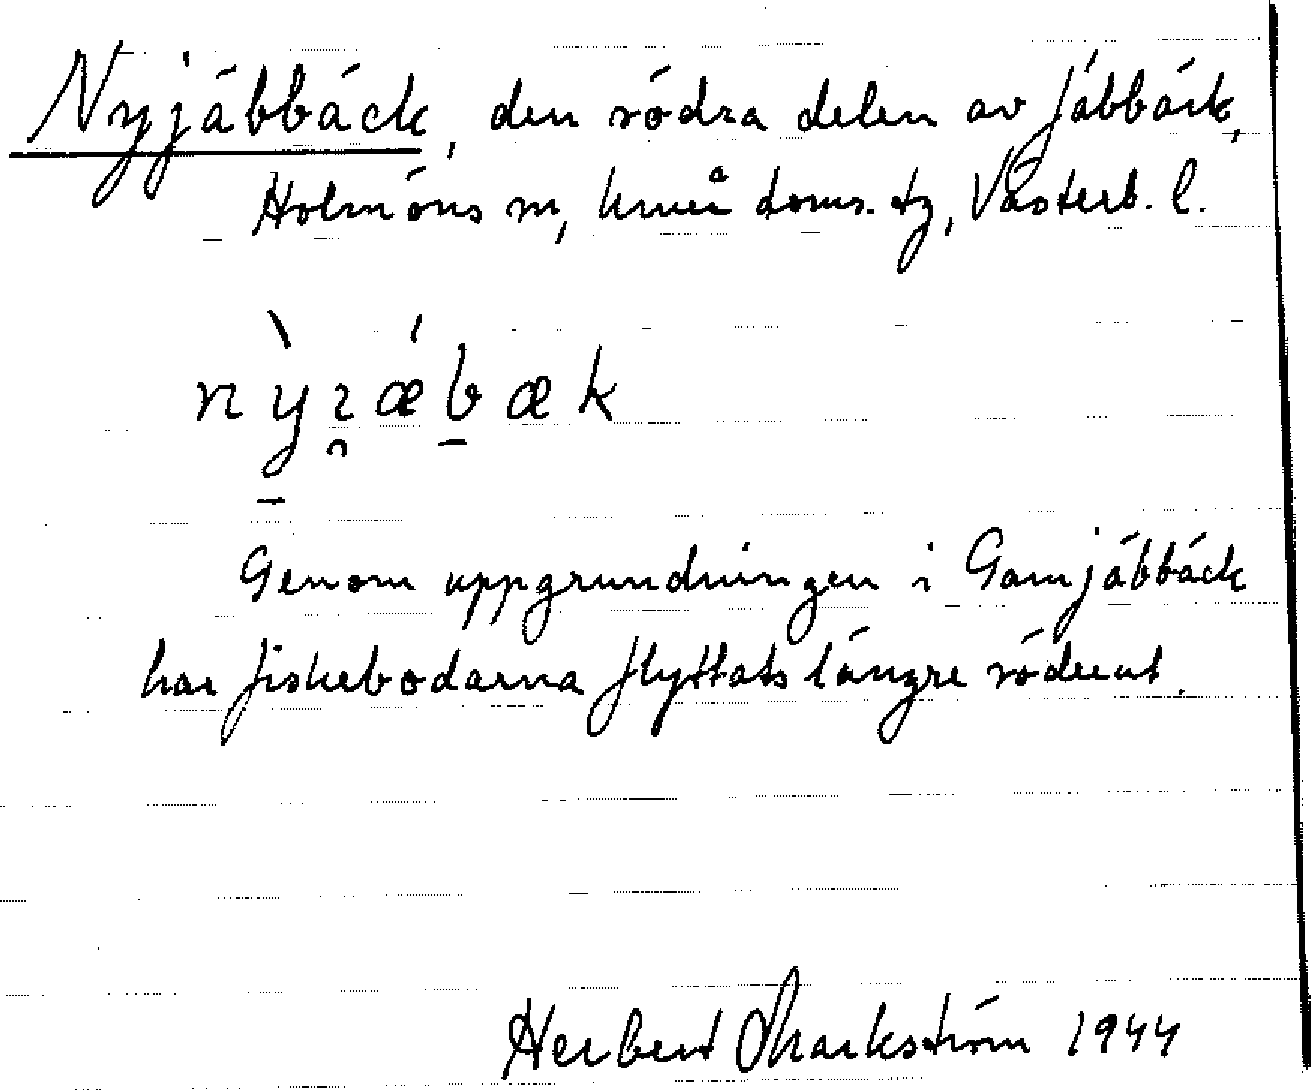 Nyjäbbäck, den södra delen av Jäbbäck,
Holmöns sn, Umeå doms. tg, Västerb. l.
Genom uppgrundningen i Gamjäbbäck
har fiskebodarna flyttats längre söderut.
Herbert Markström 1944